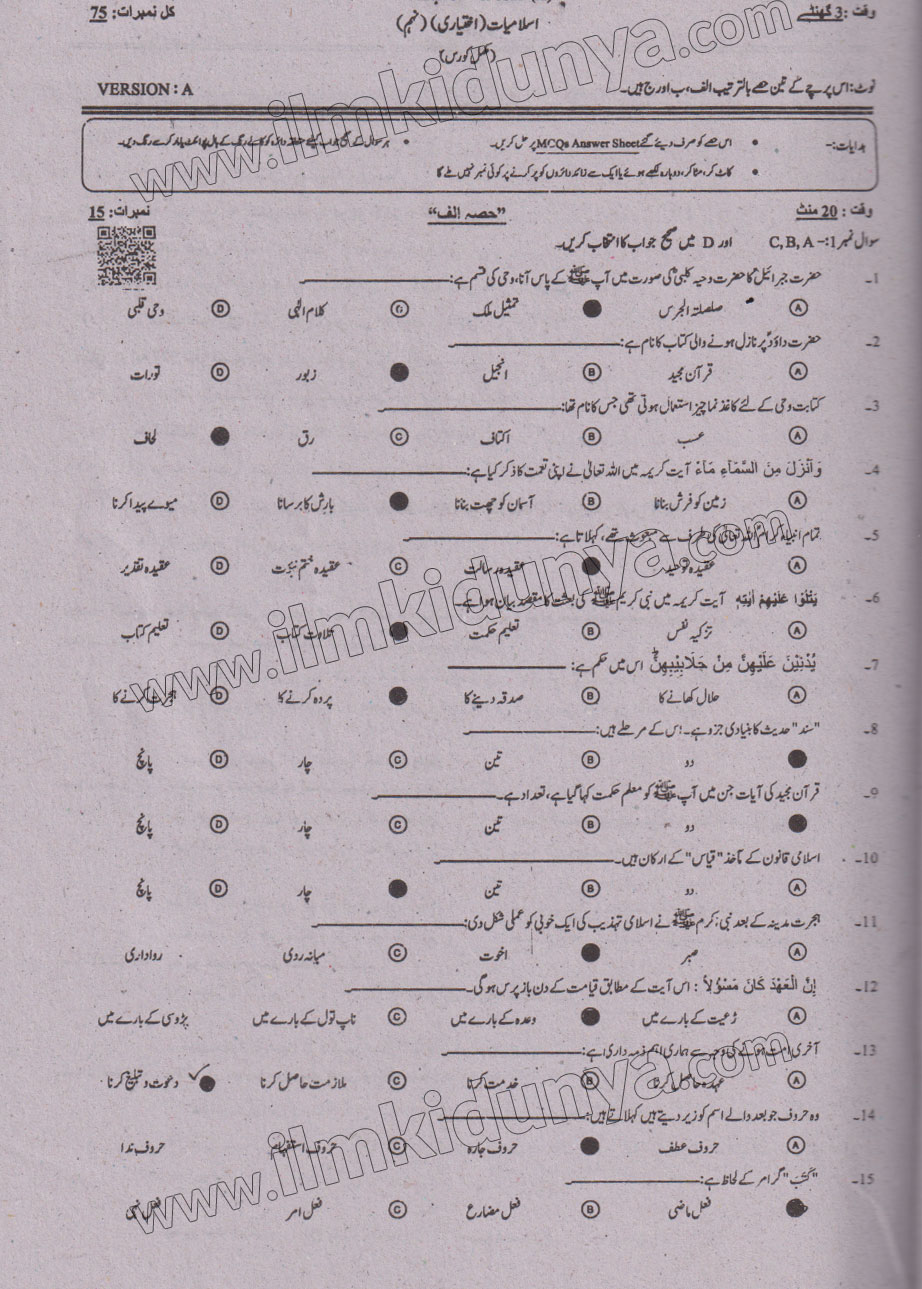 وقت : 3 گھنٹے
اسلامیات (اختیاری) (نہم)
کل نمبرات : 75
(مکمل کورس)
نوٹ: اس پرچے کے تین حصے بالترتیب الف، ب اور ج ہیں۔
VERSION : A
ہدایات :-
• اس حصے کو صرف دیئے گئے MCQs Answer Sheet پر حل کریں۔
• ہر سوال کے صحیح جواب کیلئے متعلقہ دائرہ کو کالے رنگ کے بال پوائنٹ یا مارکر سے رنگ دیں۔
• کاٹ کر، مٹا کر، دوبارہ لکھے ہوئے یا ایک سے زائد دائروں کو پُر کرنے پر کوئی نمبر نہیں ملے گا
وقت : 20 منٹ
"حصہ الف"
نمبرات : 15
سوال نمبر 1: -C, B, A اور D میں صحیح جواب کا انتخاب کریں۔
1۔ حضرت جبرائیلؑ کا حضرت دحیہ کلبیؓ کی صورت میں آپ ﷺ کے پاس آنا، وحی کی قسم ہے:
(A) صلصلتہ الجرس تمثیل ملک (C) کلام الٰہی (D) وحی قلبی
2۔ حضرت داؤدؑ پر نازل ہونے والی کتاب کا نام ہے:
(A) قرآن مجید (B) انجیل زبور (D) تورات
3۔ کتابت وحی کے لئے کاغذ نما چیز استعمال ہوتی تھی جس کا نام تھا:
(A) عسب (B) اکتاف (C) رق لخاف
4۔ وَاَنْزَلَ مِنَ السَّمَآءِ مَآءً آیت کریمہ میں اللہ تعالیٰ نے اپنی نعمت کا ذکر کیا ہے:
(A) زمین کو فرش بنانا (B) آسمان کو چھت بنانا بارش کا برسانا (D) میوے پیدا کرنا
5۔ تمام انبیاء کرام اللہ تعالیٰ کی طرف سے مبعوث تھے، کہلاتا ہے:
(A) عقیدہ توحید عقیدہ رسالت (C) عقیدہ ختم نبوّت (D) عقیدہ تقدیر
6۔ يَتْلُوْا عَلَيْهِمْ اٰيٰتِهٖ آیت کریمہ میں نبی کریم ﷺ کی بعثت کا مقصد بیان ہوا ہے۔
(A) تزکیہ نفس (B) تعلیم حکمت تلاوت کتاب (D) تعلیم کتاب
7۔ يُدْنِيْنَ عَلَيْهِنَّ مِنْ جَلَابِيْبِهِنَّ ؕ اس میں حکم ہے:
(A) حلال کھانے کا (B) صدقہ دینے کا پردہ کرنے کا (D) ہجرت کرنے کا
8۔ "سند" حدیث کا بنیادی جزو ہے۔ اس کے مرحلے ہیں:
دو (B) تین (C) چار (D) پانچ
9۔ قرآن مجید کی آیات جن میں آپ ﷺ کو معلم حکمت کہا گیا ہے، تعداد ہے۔
دو (B) تین (C) چار (D) پانچ
10۔ اسلامی قانون کے مآخذ "قیاس" کے ارکان ہیں۔
(A) دو (B) تین چار (D) پانچ
11۔ ہجرت مدینہ کے بعد نبی کرم ﷺ نے اسلامی تہذیب کی ایک خوبی کو عملی شکل دی:
(A) صبر اخوت (C) میانہ روی رواداری
12۔ اِنَّ الْعَهْدَ كَانَ مَسْؤُلًا : اس آیت کے مطابق قیامت کے دن باز پرس ہوگی۔
(A) رعیت کے بارے میں وعدہ کے بارے میں (C) ناپ تول کے بارے میں پڑوسی کے بارے میں
13۔ آخری امت ہونے کی وجہ سے ہماری اہم ذمہ داری ہے:
(A) عہدہ حاصل کرنا (B) خدمت کرنا (C) ملازمت حاصل کرنا دعوت و تبلیغ کرنا
14۔ وہ حروف جو بعد والے اسم کو زیر دیتے ہیں کہلاتے ہیں:
(A) حروف عطف حروف جارہ (C) حروف استفہام حروف ندا
15۔ "كَتَبَ" گرامر کے لحاظ ہے:
فعل ماضی (B) فعل مضارع (C) فعل امر فعل نہی
www.ilmkidunya.com
www.ilmkidunya.com
www.ilmkidunya.com